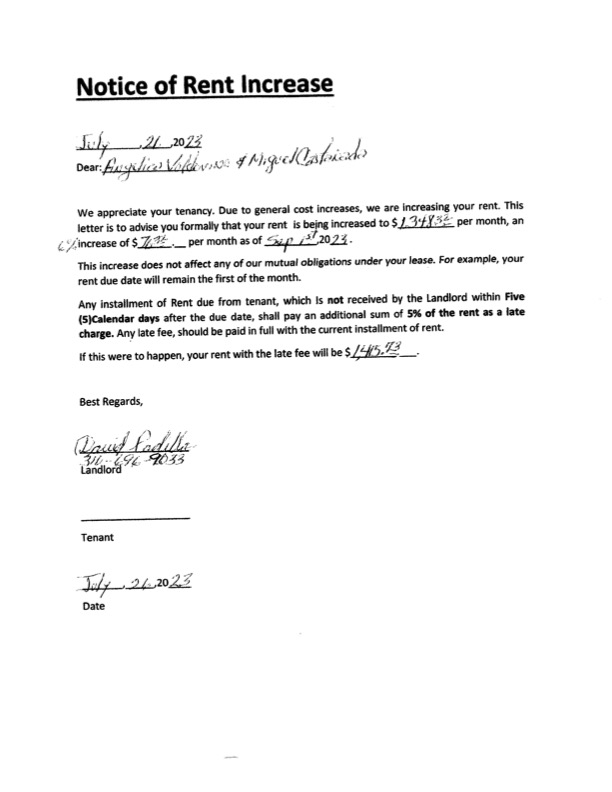 Notice of Rent Increase
July , 26 ,2023
Dear: Angelica & Miguel
We appreciate your tenancy. Due to general cost increases, we are increasing your rent. This
letter is to advise you formally that your rent is being increased to $1,348.32 per month, an
6% increase of $76.32 per month as of Sep 1st, 2023.
This increase does not affect any of our mutual obligations under your lease. For example, your
rent due date will remain the first of the month.
Any installment of Rent due from tenant, which is not received by the Landlord within Five
(5)Calendar days after the due date, shall pay an additional sum of 5% of the rent as a late
charge. Any late fee, should be paid in full with the current installment of rent.
If this were to happen, your rent with the late fee will be $1,415.73.
Best Regards,
David Padilla
Landlord
Tenant
July , 26 ,2023
Date